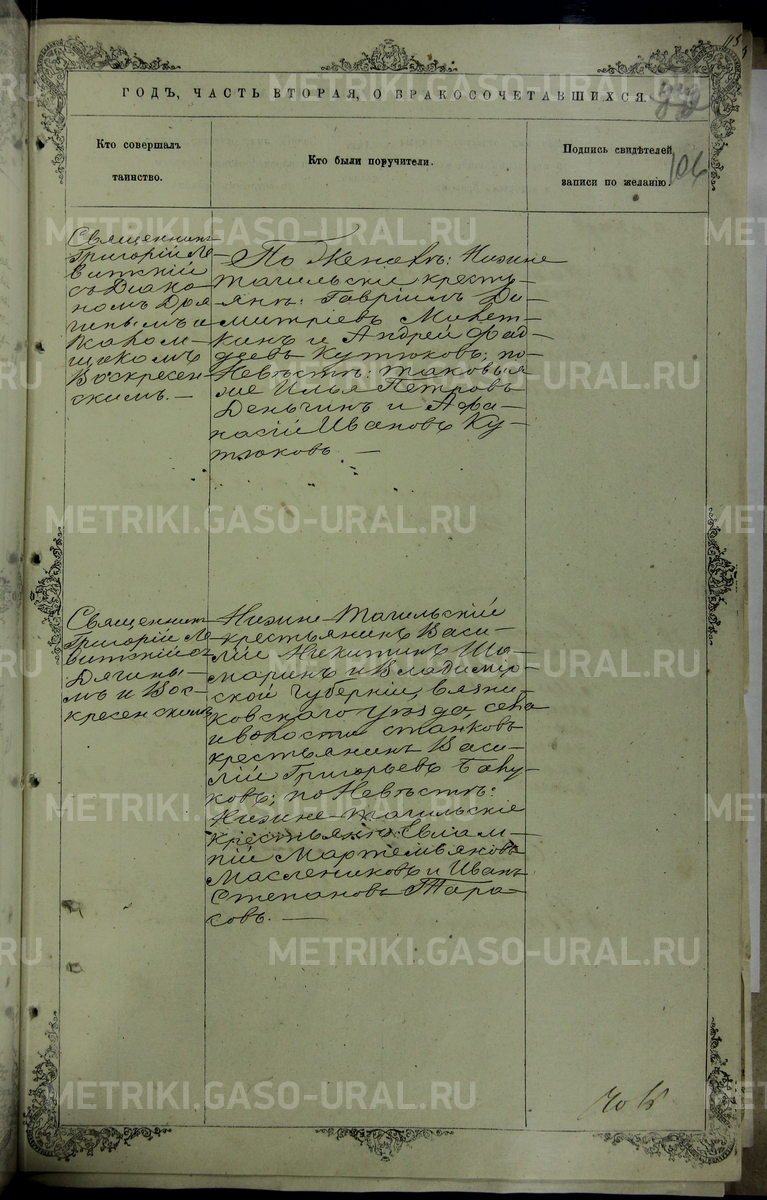 ГОДЪ, ЧАСТЬ ВТОРАЯ, О БРАКОСОЧЕТАВШИХСЯ.
Кто совершалъ
таинство.
Кто были поручители.
Подпись свидѣтелей
записи по желанію.
106
Священникъ
Григорій Ле-
витскій
съ Діако-
номъ Дря-
гинымъ и
Псалом-
щикомъ
Воскресен-
скимъ. —
По Женихѣ: Нижне
Тагильскіе кресть-
яне: Гавріилъ Ди-
митріевъ
и Андрей Фад-
деевъ Кутюковъ; по
Невѣстѣ: таковые
же Илья Петровъ
Деньгинъ и Афа-
насій Ивановъ Ку-
тюковъ. —
Священникъ
Григорій Ле-
витскій съ
и Вос-
кресенскимъ
Нижне-Тагильскій
крестьянинъ Васи-
лій Никитинъ Ша-
маринъ и Владимір-
ской губерніи, Вязни-
ковскаго уѣзда, села
и волости Станковъ
крестьянинъ Васи-
лій Григорьевъ
по Невѣстѣ:
Нижне-Тагильскіе
крестьяне: Евлам-
пій Мартемьяновъ
Маслениковъ и Иванъ
Степановъ Тара-
совъ. —
METRIKI.GASO-URAL.RU